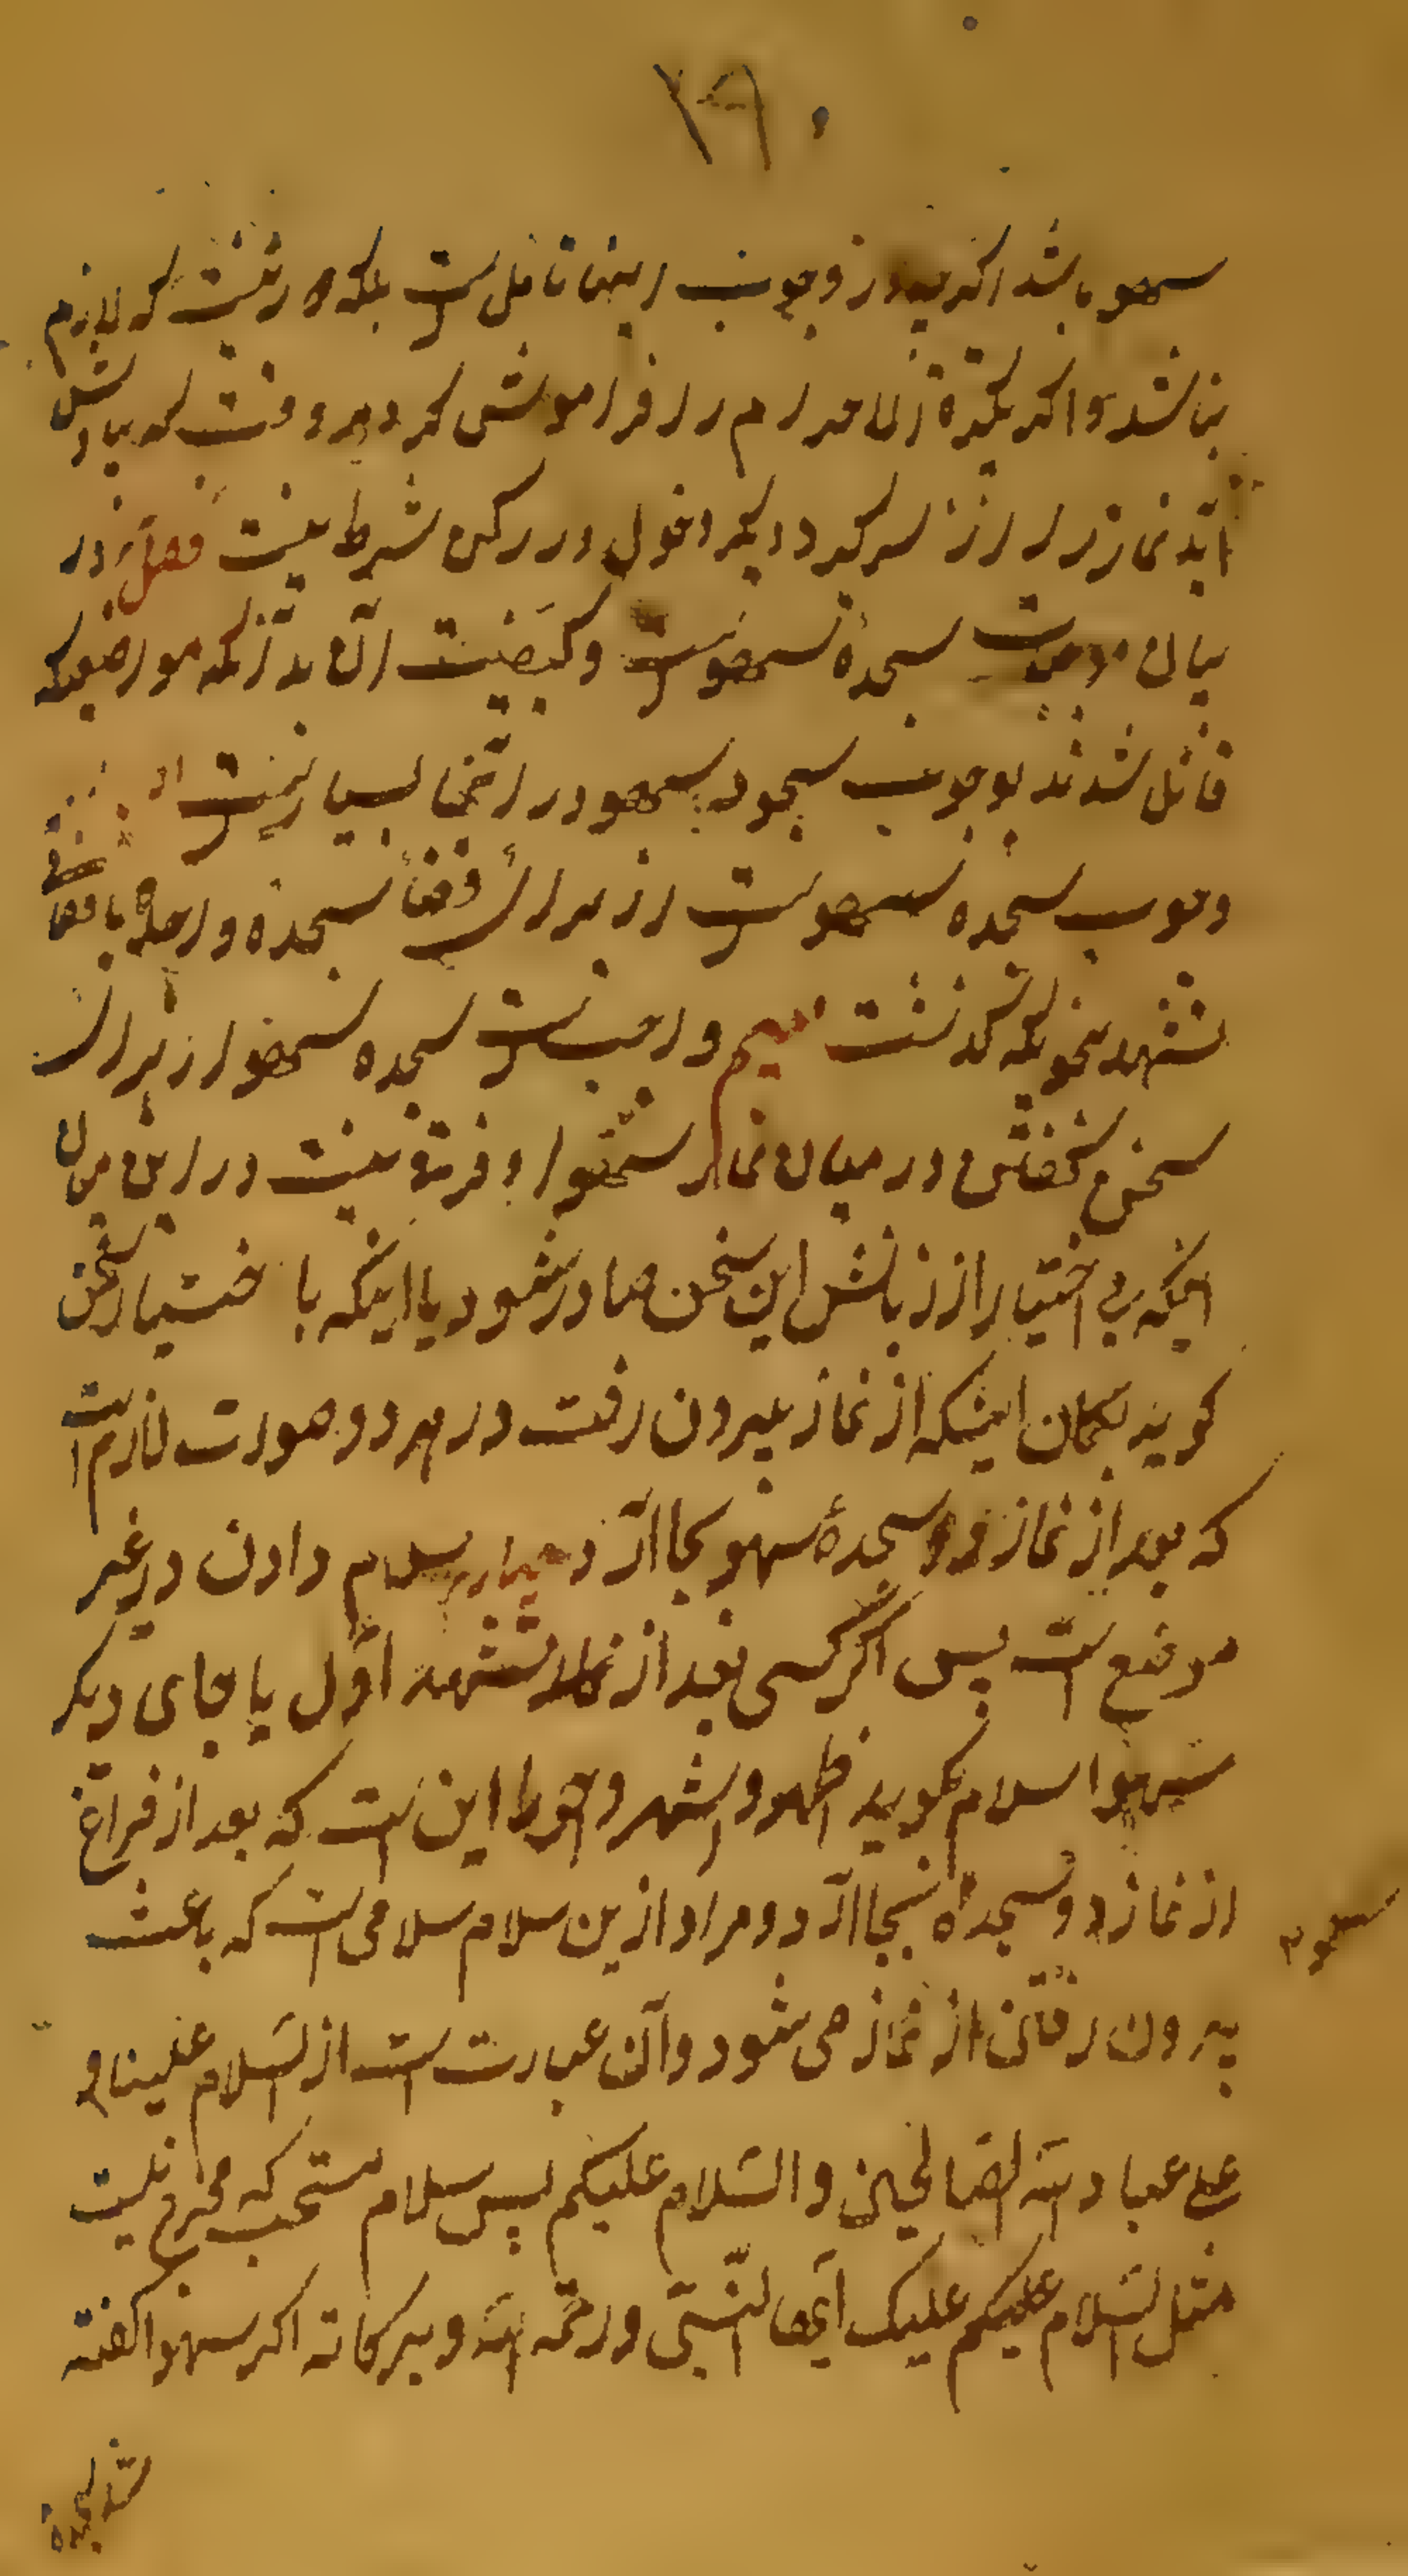 ١٩٠
سهو باشد اکر چه در وجوب اینها تأمل است بلکه دور نیست که لازم
نباشد و اکر تکبیرة الاحرام را فراموش کرد هر وقت که بیادش
آید نماز را از سر کیرد دیکر دخول در رکن شرط نیست فصل در
بیان موجبات سجده سهو است و کیفیت آن بدانکه مواضعیکه
قائل شدند بوجوب سجود سهو در آنها بسیار است
وجوب سجده سهو است از برای قضأ سجده واحده با قضای
تشهد بنحویکه گذشت سیم واجب است سجده سهو از برای
سخن گفتن در میان نماز سهوا و فرقی نیست در این میان
اینکه بی اختیار از زبانش این سخن صادر شود یا اینکه با ختیار سخن
کوید بکمان اینکه از نماز بیرون رفت در هر دو صورت لازم است
که بعد از نماز دو سجدۀ سهو بجا آرد چهارم سلام دادن در غیر
موضع است پس اگر کسی بعد از تشهد اول یا جای دیکر
سهوا سلام بکوید اظهر و اشهر و احوط این است که بعد از فراغ
از نماز دو سجده بجا آرد و مراد ازین سلام سلامی است که باعث
سهو م
بیرون رفتن از نماز می شود و آن عبارت است از السلام علینا و
علی عباد الله الصالحین و السلام علیکم پس سلام مستحب که مخرج نیست
مثل السلام علیکم علیک ایها النبی و رحمه الله و برکاته اکر سهوا کفته
شد سجده